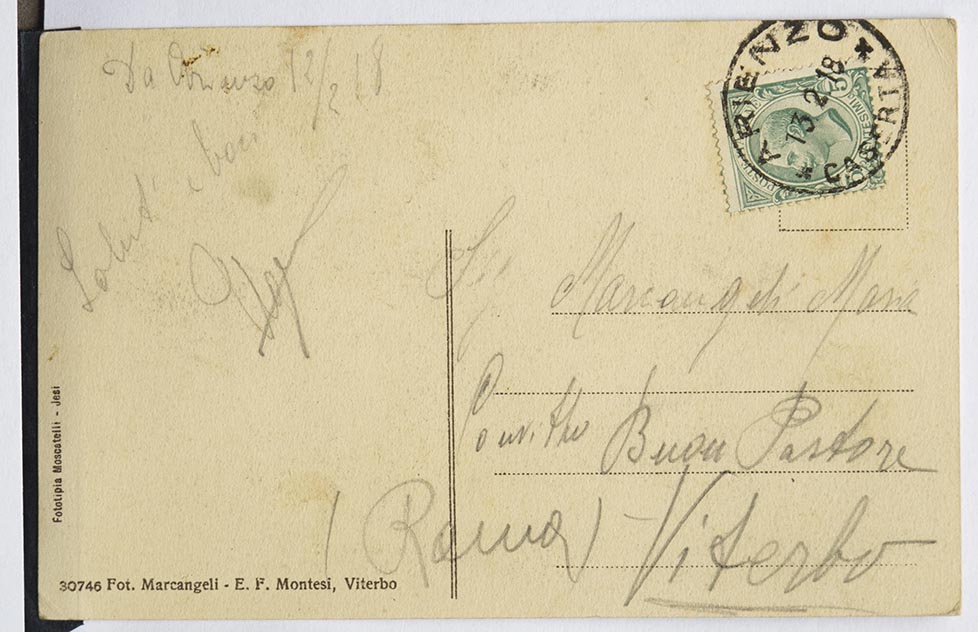 Da 12/2 18
Saluti e baci
ARIENZO * CASERTA *
13 2 18
Sig Marcangeli Maria
Convitto Buon Pastore
(Roma) Viterbo
Fototipia Moscatelli - Jesi
30746 Fot. Marcangeli - E. F. Montesi, Viterbo